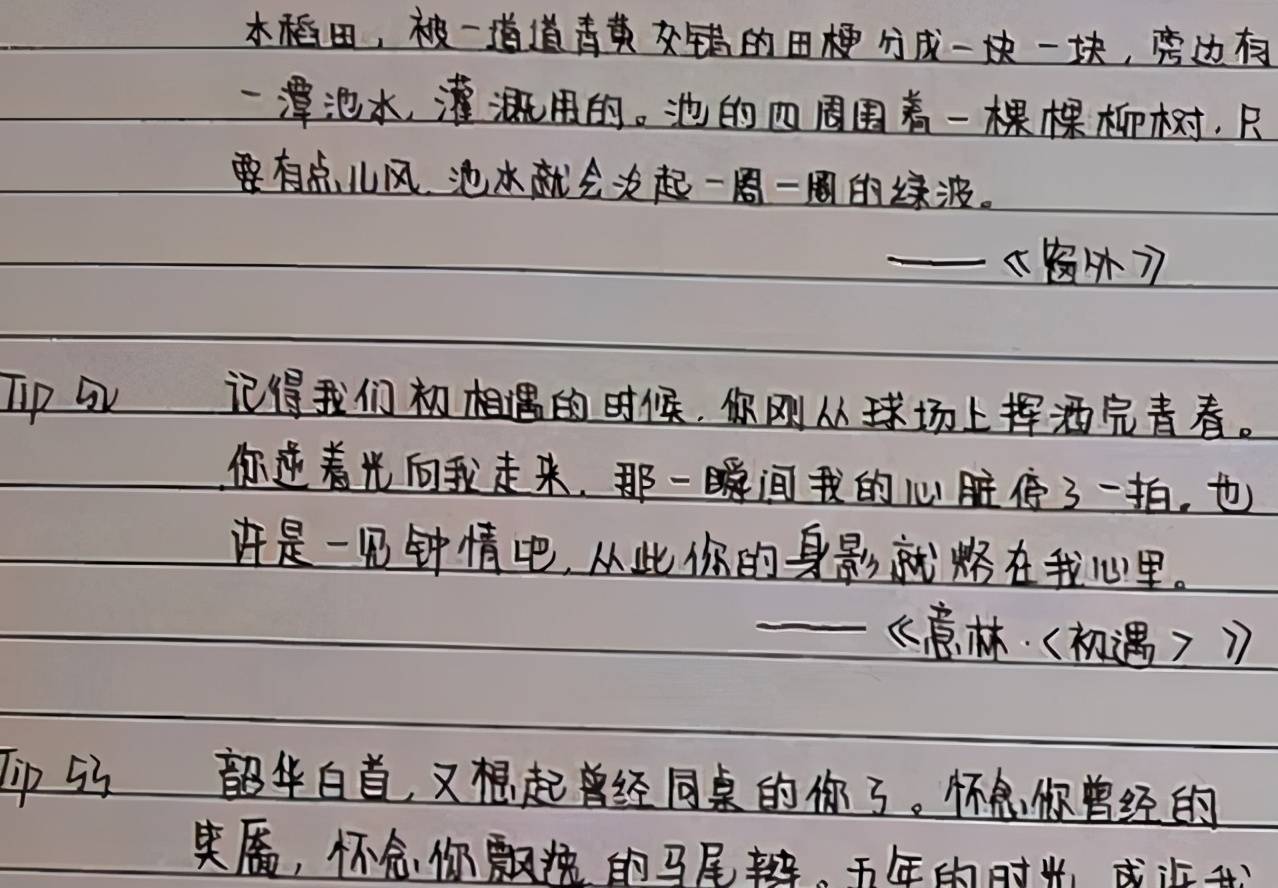 水稻田，被一道道青黄交错的田梗分成一块一块，旁边有
一潭池水，灌溉用的。池的四周围着一棵棵柳树，只
要有点儿风，池水就会泛起一圈一圈的绿波。
——《窗外》
Tip 52 记得我们初相遇的时候，你刚从球场上挥洒完青春。
你逆着光向我走来，那一瞬间我的心脏停了一拍。也
许是一见钟情吧，从此你的身影就烙在我心里。
——《意林·<初遇>》
Tip 53 韶华白首，又想起曾经同桌的你了。怀念你曾经的
笑靥，怀念你飘逸的马尾辫。五年的时光，或许我